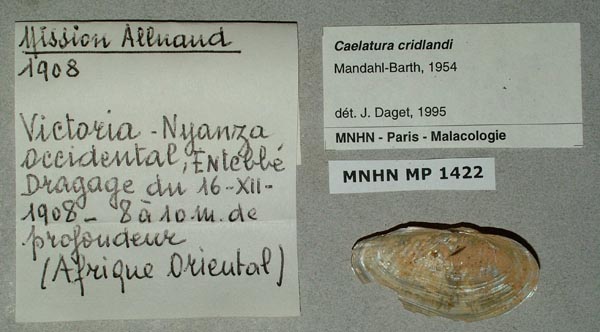 Mission Alluaud
1908
Victoria-Nyanza
occidental, Entebbé
Dragage du 16-XII-
1908- 8 à 10 m. de
profondeur
(Afrique Oriental)
Caelatura cridlandi
Mandahl-Barth, 1954
dét. J. Daget, 1995
MNHN - Paris - Malacologie
MNHN MP 1422